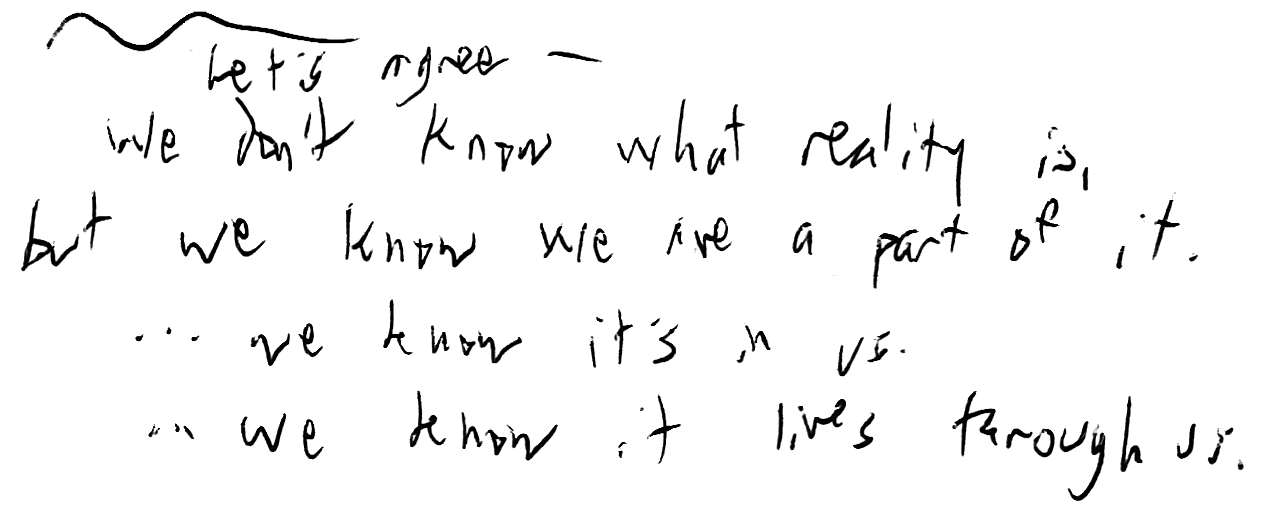 Let's agree —
we don't know what reality is,
but we know we are a part of it.
... we know it's in us.
... we know it lives through us.